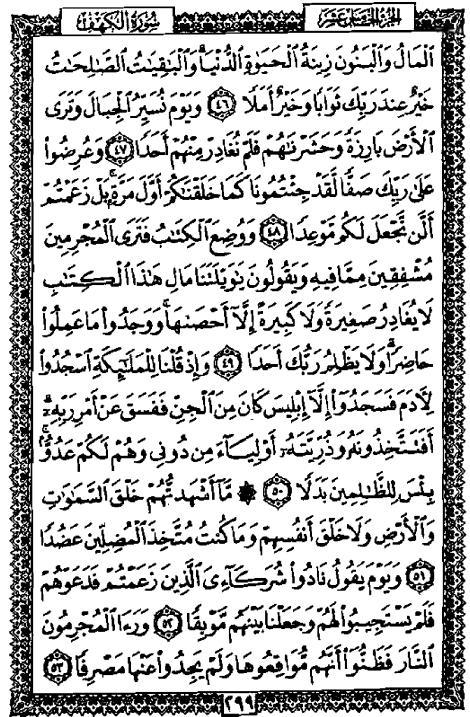 سُورَةُ الكَهْفِ
الجُزْءُ الخَامِسَ عَشَرَ
الْمَالُ وَالْبَنُونَ زِينَةُ الْحَيَوٰةِ الدُّنْيَا ۖ وَالْبَٰقِيَٰتُ الصَّٰلِحَٰتُ
خَيْرٌ عِندَ رَبِّكَ ثَوَابًا وَخَيْرٌ أَمَلًا ٤٦ وَيَوْمَ نُسَيِّرُ الْجِبَالَ وَتَرَى
الْأَرْضَ بَارِزَةً وَحَشَرْنَٰهُمْ فَلَمْ نُغَادِرْ مِنْهُمْ أَحَدًا ٤٧ وَعُرِضُوا
عَلَىٰ رَبِّكَ صَفًّا لَّقَدْ جِئْتُمُونَا كَمَا خَلَقْنَٰكُمْ أَوَّلَ مَرَّةٍ ۚ بَلْ زَعَمْتُمْ
أَلَّن نَّجْعَلَ لَكُم مَّوْعِدًا ٤٨ وَوُضِعَ الْكِتَٰبُ فَتَرَى الْمُجْرِمِينَ
مُشْفِقِينَ مِمَّا فِيهِ وَيَقُولُونَ يَٰوَيْلَتَنَا مَالِ هَٰذَا الْكِتَٰبِ
لَا يُغَادِرُ صَغِيرَةً وَلَا كَبِيرَةً إِلَّا أَحْصَىٰهَا ۚ وَوَجَدُوا مَا عَمِلُوا
حَاضِرًا ۗ وَلَا يَظْلِمُ رَبُّكَ أَحَدًا ٤٩ وَإِذْ قُلْنَا لِلْمَلَٰٓئِكَةِ اسْجُدُوا
لِءَادَمَ فَسَجَدُوٓا إِلَّآ إِبْلِيسَ كَانَ مِنَ الْجِنِّ فَفَسَقَ عَنْ أَمْرِ رَبِّهِۦٓ ۗ
أَفَتَتَّخِذُونَهُۥ وَذُرِّيَّتَهُۥٓ أَوْلِيَآءَ مِن دُونِي وَهُمْ لَكُمْ عَدُوٌّۢ ۚ
بِئْسَ لِلظَّٰلِمِينَ بَدَلًا ٥٠ ۞ مَّآ أَشْهَدتُّهُمْ خَلْقَ السَّمَٰوَٰتِ
وَالْأَرْضِ وَلَا خَلْقَ أَنفُسِهِمْ وَمَا كُنتُ مُتَّخِذَ الْمُضِلِّينَ عَضُدًا
٥١ وَيَوْمَ يَقُولُ نَادُوا شُرَكَآءِيَ الَّذِينَ زَعَمْتُمْ فَدَعَوْهُمْ
فَلَمْ يَسْتَجِيبُوا لَهُمْ وَجَعَلْنَا بَيْنَهُم مَّوْبِقًا ٥٢ وَرَءَا الْمُجْرِمُونَ
النَّارَ فَظَنُّوٓا أَنَّهُم مُّوَاقِعُوهَا وَلَمْ يَجِدُوا عَنْهَا مَصْرِفًا ٥٣
٢٩٩